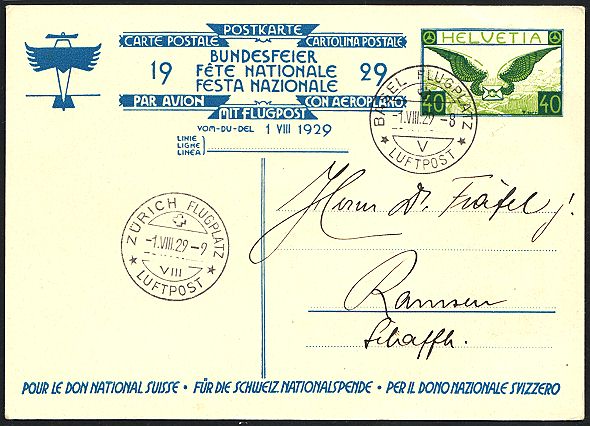 POSTKARTE
CARTE POSTALE CARTOLINA POSTALE
BUNDESFEIER
19 FÊTE NATIONALE 29
FESTA NAZIONALE
PAR AVION CON AEROPLANO
MIT FLUGPOST
VOM-DU-DEL 1 VIII 1929
LINIE
LIGNE
LINEA
HELVETIA
40 40
BASEL FLUGPLATZ
-1.VIII.29-8
V
LUFTPOST
ZÜRICH FLUGPLATZ
-1.VIII.29-9
VIII
LUFTPOST
Herrn Dr.
Ramsen
Schaffh.
POUR LE DON NATIONAL SUISSE • FÜR DIE SCHWEIZ. NATIONALSPENDE • PER IL DONO NAZIONALE SVIZZERO